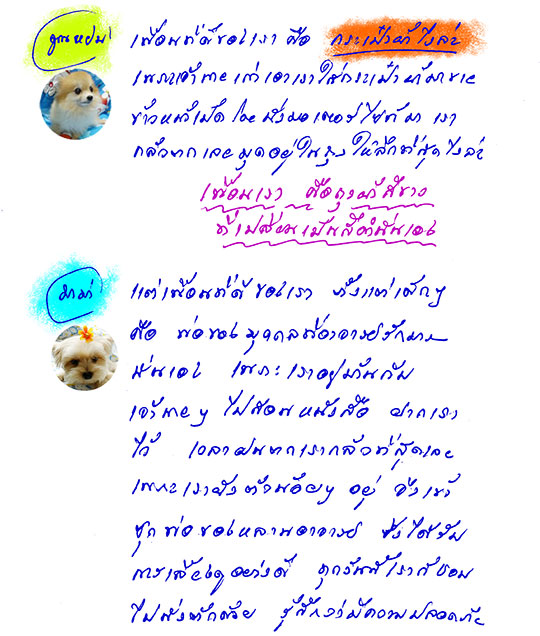 คุณหยิน
เพื่อนที่ดีของเรา คือ กระเป๋าผ้าไงล่ะ
เพราะเจ้านาย เค้าเอาเราใส่กระเป๋าผ้ามาขาย
ข้าวหน้าเป็ด โดย นั่งมอเตอร์ไซค์มา เรา
กลัวมาก เลย มุดอยู่ในถุง ให้ลึกที่สุดไงล่ะ
เพื่อนเรา คือถุงผ้าสีขาว
ที่เปลี่ยนเป็นสีดำนั่นเอง
แต่เพื่อนที่ดี ของเรา ตั้งแต่เด็กๆ
คือ พ่อของ
นั่นเอง เพราะ เราอยู่บ้านกับ
เจ้านายๆ ไปสอนหนังสือ ฝากเรา
ไว้ เวลาฝนตกเรากลัวที่สุดเลย
เพราะเรายังตัวน้อยๆ อยู่ จึงเข้า
ซุก พ่อของหลานอาจารย์ ซึ่งได้รับ
การเลี้ยงดูอย่างดี ทุกวันนี้เราก็ชอบ
ไปนั่งตักด้วย รู้สึกว่ามีความปลอดภัย